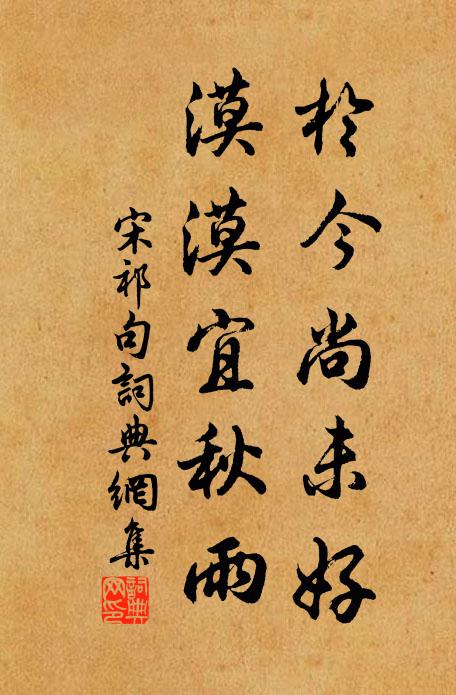 於今尚未好
漠漠宜秋雨
宋祁句詞典網集
詞典网印